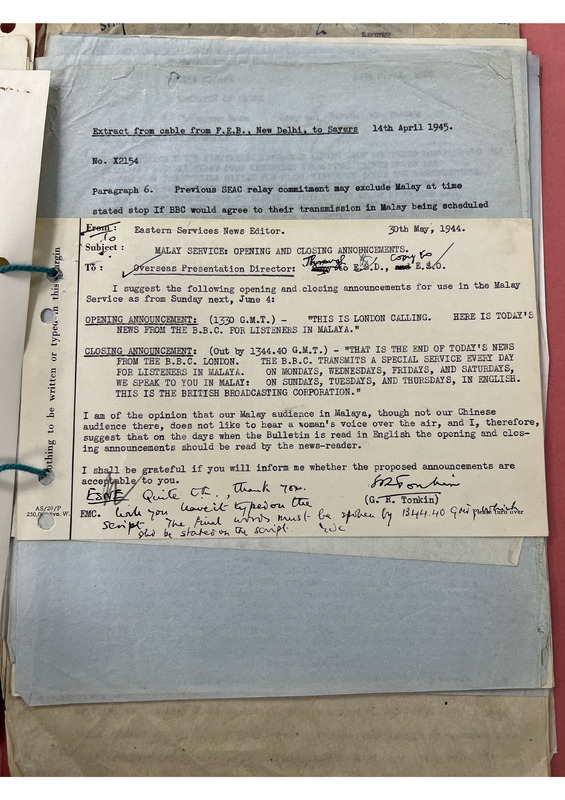 Extract from cable from F.E.B., New Delhi, to Sayers 14th April 1945.
No. X2154
Paragraph 6. Previous SEAC relay commitment may exclude Malay at time
stated stop If BBC would agree to their transmission in Malay being scheduled
From: Eastern Services News Editor. 30th May, 1944.
To
Subject: MALAY SERVICE: OPENING AND CLOSING ANNOUNCEMENTS.
To: Overseas Presentation Director: Through E.S.D., Copy to E.S.O.
I suggest the following opening and closing announcements for use in the Malay
Service as from Sunday next, June 4:
OPENING ANNOUNCEMENT: (1330 G.M.T.) - "THIS IS LONDON CALLING. HERE IS TODAY'S
NEWS FROM THE B.B.C. FOR LISTENERS IN MALAYA."
CLOSING ANNOUNCEMENT: (Out by 1344.40 G.M.T.) - "THAT IS THE END OF TODAY'S NEWS
FROM THE B.B.C. LONDON. THE B.B.C. TRANSMITS A SPECIAL SERVICE EVERY DAY
FOR LISTENERS IN MALAYA. ON MONDAYS, WEDNESDAYS, FRIDAYS, AND SATURDAYS,
WE SPEAK TO YOU IN MALAY: ON SUNDAYS, TUESDAYS, AND THURSDAYS, IN ENGLISH.
THIS IS THE BRITISH BROADCASTING CORPORATION."
I am of the opinion that our Malay audience in Malaya, though not our Chinese
audience there, does not like to hear a woman's voice over the air, and I, therefore,
suggest that on the days when the Bulletin is read in English the opening and clos-
ing announcements should be read by the news-reader.
I shall be grateful if you will inform me whether the proposed announcements are
acceptable to you.
ESNE Quite O.K., thank you.
(G. R. Tonkin)
EMC. Will you have it typed on the
script. The final words must be spoken by 1344.40 G.M.T. which
shd be stated on the script.
Please turn over
AS/20/P
othing to be written or typed in this margin